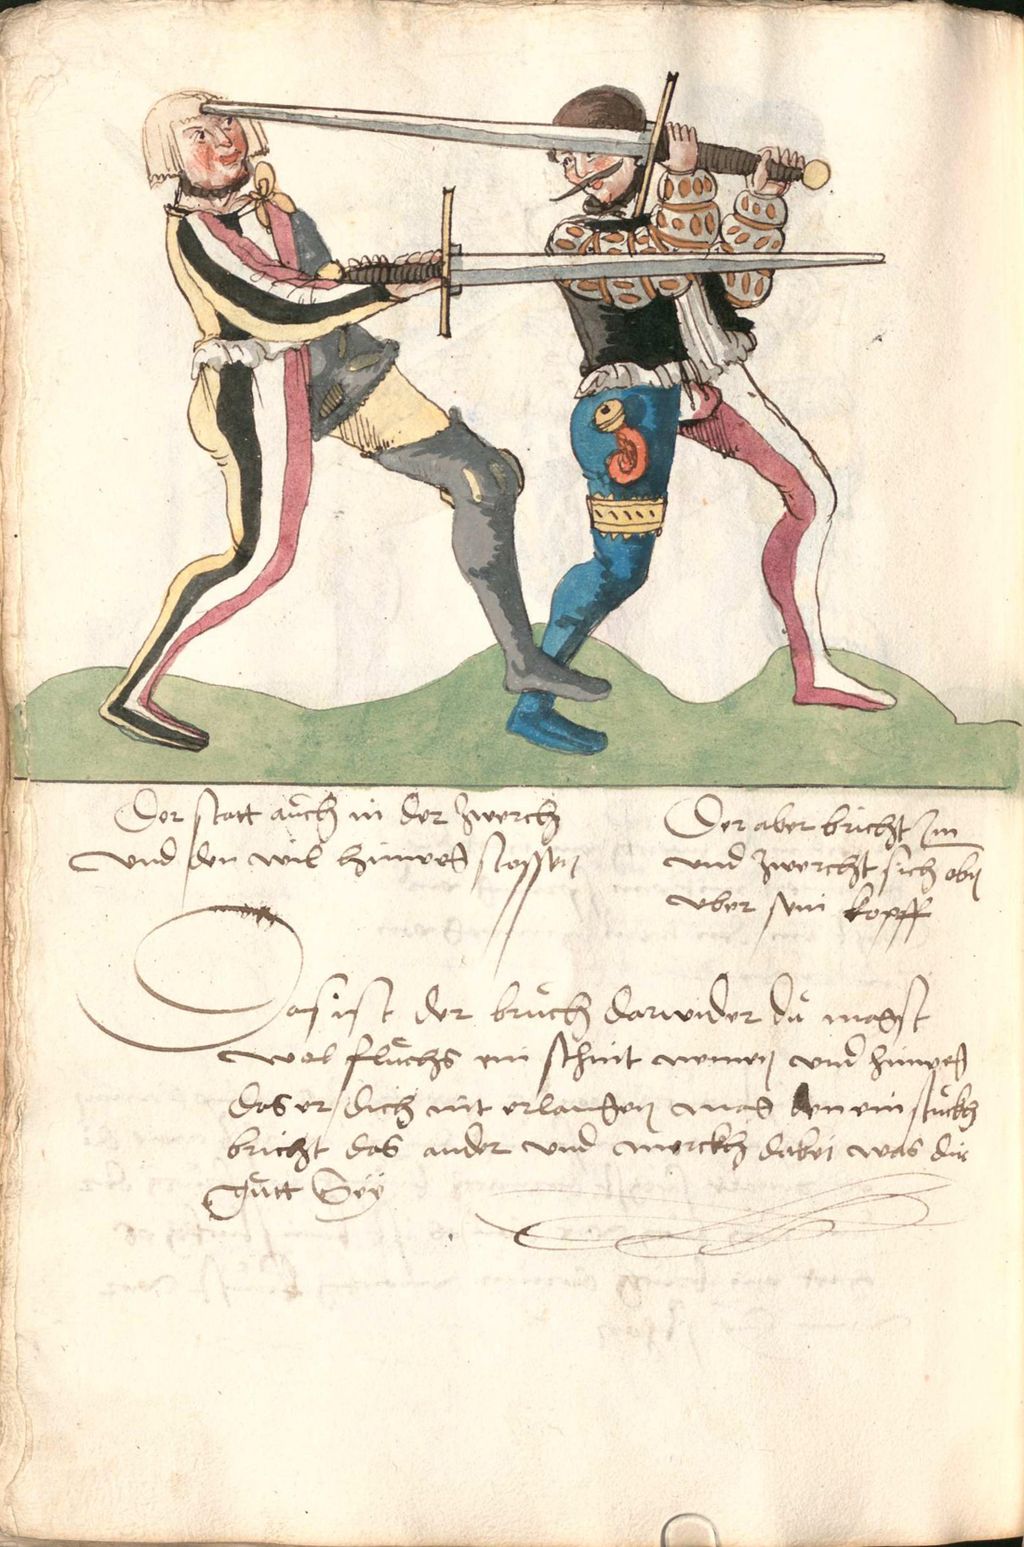 Der statt auch in der zwerch
und den wil hinweg stossen
Der aber bricht Im
und zwercht sich oben
uber sein kopff
Das ist der bruch darwider du magst
wol fluchs ein schnit nemen und hinweg
das er dich nit erlangen mag den ein stuckh
bricht das ander und merckh dabei was dir
gutt Seÿ